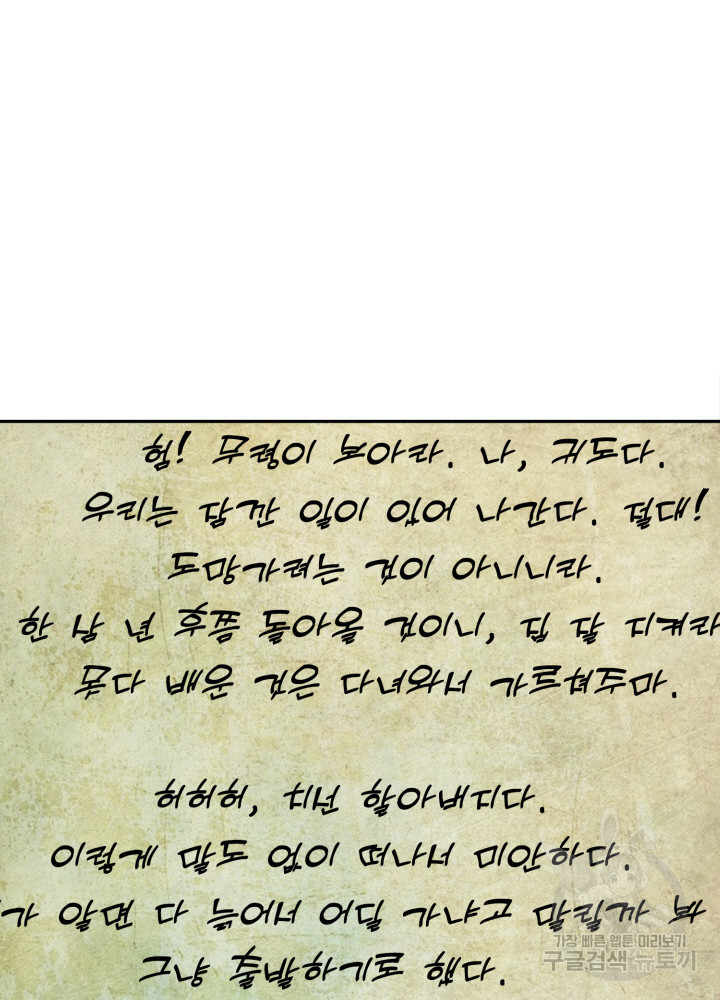 험! 무령이 보아라. 나, 귀도다.
우리는 잠깐 일이 있어 나간다. 절대!
도망가려는 것이 아니니라.
한 삼 년 후쯤 돌아올 것이니, 집 잘 지켜라
못다 배운 것은 다녀와서 가르쳐주마.
허허허, 치선 할아버지다.
이렇게 말도 없이 떠나서 미안하다.
가 알면 다 늙어서 어딜 가냐고 말릴까 봐
그냥 출발하기로 했다.
가장 빠른 웹툰 미리보기
구글검색 뉴토끼